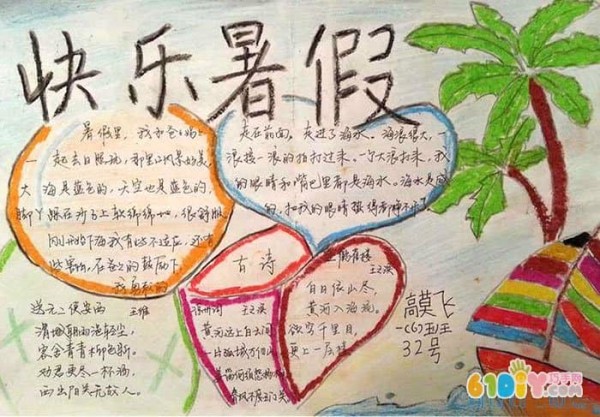 快乐暑假
暑假里，我和爸爸妈妈
一起去日照玩，那里的风景很美。
大海是蓝色的，天空也是蓝色的，
脚丫踩在沙子上软绵绵的，很舒服。
刚开始下海我有些不适应，还有
些害怕，在爸爸的鼓励下，
我勇敢的
走在前面，走进了海水。海浪很大，一
浪接一浪的拍打过来，一个大浪打来，我
的眼睛和嘴巴里都是海水。海水是咸
的，把我的眼睛
古诗
送元二使安西
王维
渭城朝雨浥轻尘，
客舍青青柳色新。
劝君更尽一杯酒，
西出阳关无故人。
凉州词
王之涣
黄河远上白云间
一片孤城万仞山
春风不度玉门关
登鹳雀楼
王之涣
白日依山尽，
黄河入海流。
欲穷千里目，
更上一层楼
高莫飞
一(6)班
32号
61DIY.com
巧手网